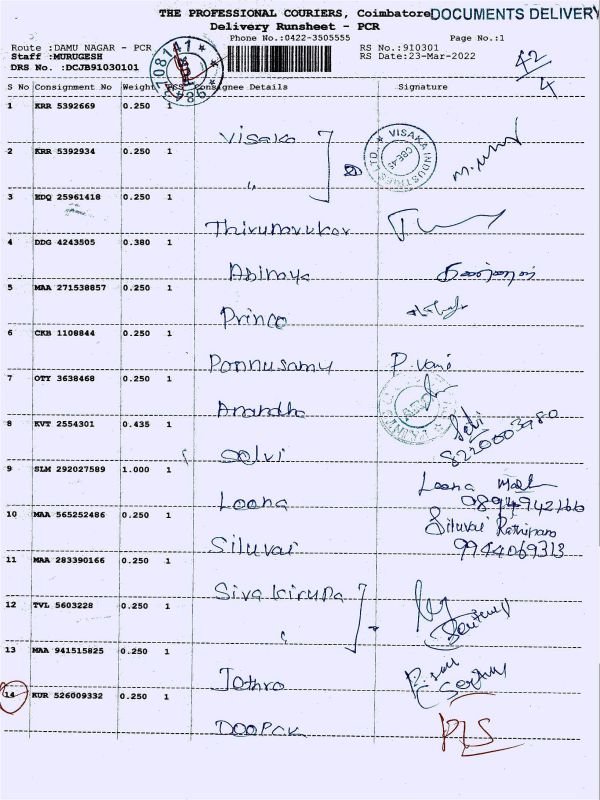 THE PROFESSIONAL COURIERS, Coimbatore DOCUMENTS DELIVERY
Delivery Runsheet - PCR
Phone No.:0422-3505555 Page No.:1
Route :DAMU NAGAR - PCR RS No.:910301
Staff :MURUGESH RS Date:23-Mar-2022
DRS No. :DCJB91030101
42
4
S No Consignment No Weight PCS Consignee Details Signature
1 KRR 5392669 0.250 1
Visaka
VISAKA INDUSTRIES LTD.
2 KRR 5392934 0.250 1
"
3 EDQ 25961418 0.250 1
Thirunavukar
4 DDG 4243505 0.380 1
Abinaya
5 MAA 271538857 0.250 1
Prince
6 CKB 1108844 0.250 1
Ponnusamy P. Vani
7 OTY 3638468 0.250 1
Anandha
8 KVT 2554301 0.435 1
Selvi Selvi
8220003980
9 SLM 292027589 1.000 1
Leena Leena
10 MAA 565252486 0.250 1
Siluvai Siluvai Rathinam
9944069313
11 MAA 283390166 0.250 1
Siva Kirupa
12 TVL 5603228 0.250 1
"
13 MAA 941515825 0.250 1
Jothro
14 KUR 526009332 0.250 1
Deepak